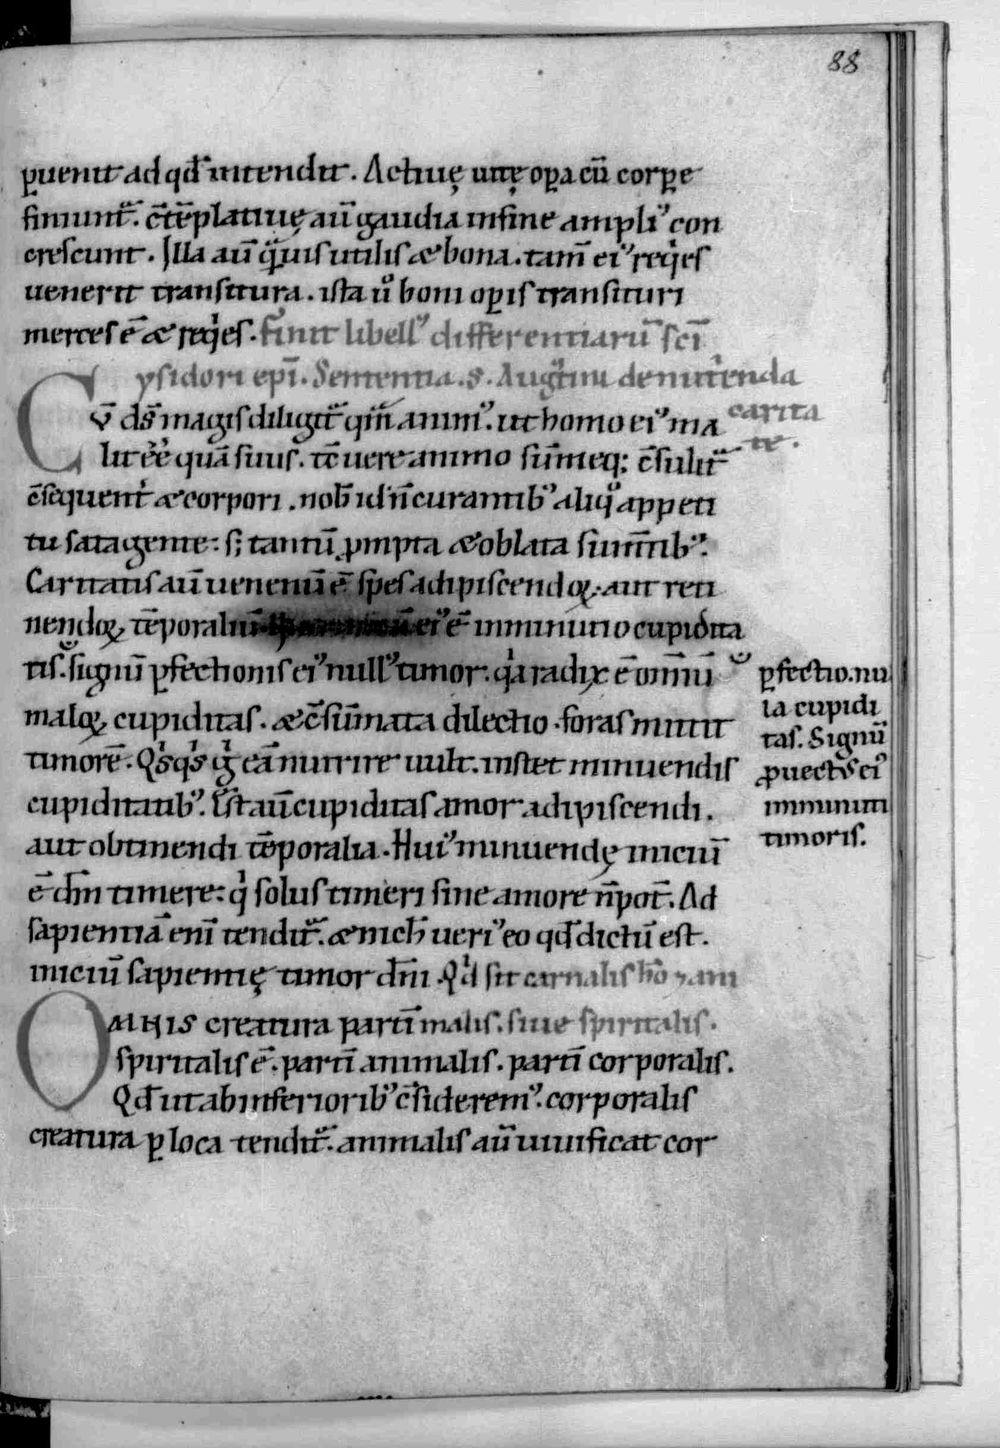 88
ꝑuenit ad qđ intendit. Actiuę uitę oꝑa cū corꝑe
finiunt᷑. c̄tēplatiuę aū gaudia in fine ampli᷒ con
crescunt. Illa aū qͣuis utilis & bona. tam̄ ei᷒ reqͥes
uenerit transitura. ista ů boni oꝑis transituri
merces ē & reqͥes. Finit libell᷒ differentiarū sc̄i
ysidori ep̄i. Sententia. S. Augͧtini de nutrienda
carita
te.
Cū ds̄ magis diligit᷑ qͣm anim᷒. ut homo ei᷒ ma
lit eē quā suus. tc̄ uere animo sūmeq; c̄sulit᷑
c̄sequent̓ & corpori. nob̄ id n̄ curantib᷒ aliqͦ appeti
tu satagente: s; tantū ꝓmpta & oblata sum̄tib᷒.
Caritatis aū uenenū ē spes adipiscendoꝝ. aut reti
nendoꝝ tēporaliū. ei᷒ ē inminutio cupidita
tis. signū ꝑfectionis ei᷒ null᷒ timor. qͥa radix ē om̄iū
maloꝝ cupiditas. & c̄sūmata dilectio. foras mittit
timorē. Qͥsqͥs gͥ eā nutrire uult. instet minuendis
cupiditatib᷒. Est aū cupiditas amor adipiscendi.
aut obtinendi tēporalia. Hui᷒ minuendę iniciū
ē dm̄ timere: qͥ solus timeri sine amore n̄ pot̄. Ad
sapientiā eni̅ tendit᷑. & nich̄ ueri᷒ eo qđ dictū est.
iniciū sapientię timor dn̄i. Qͥd sit carnalis h̄o ⁊ ani
malis. siue spiritalis.
OMNIS creatura partī
spiritalis ē. partī animalis. partī corporalis.
Qđ ut ab inferiorib᷒ c̄siderem᷒. corporalis
creatura ꝑ loca tendit᷑. animalis aū uiuificat cor
ꝑfectio. nu
la cupidi
tas. Signū
ꝓuect᷒ ei᷒
imminuti
timoris.